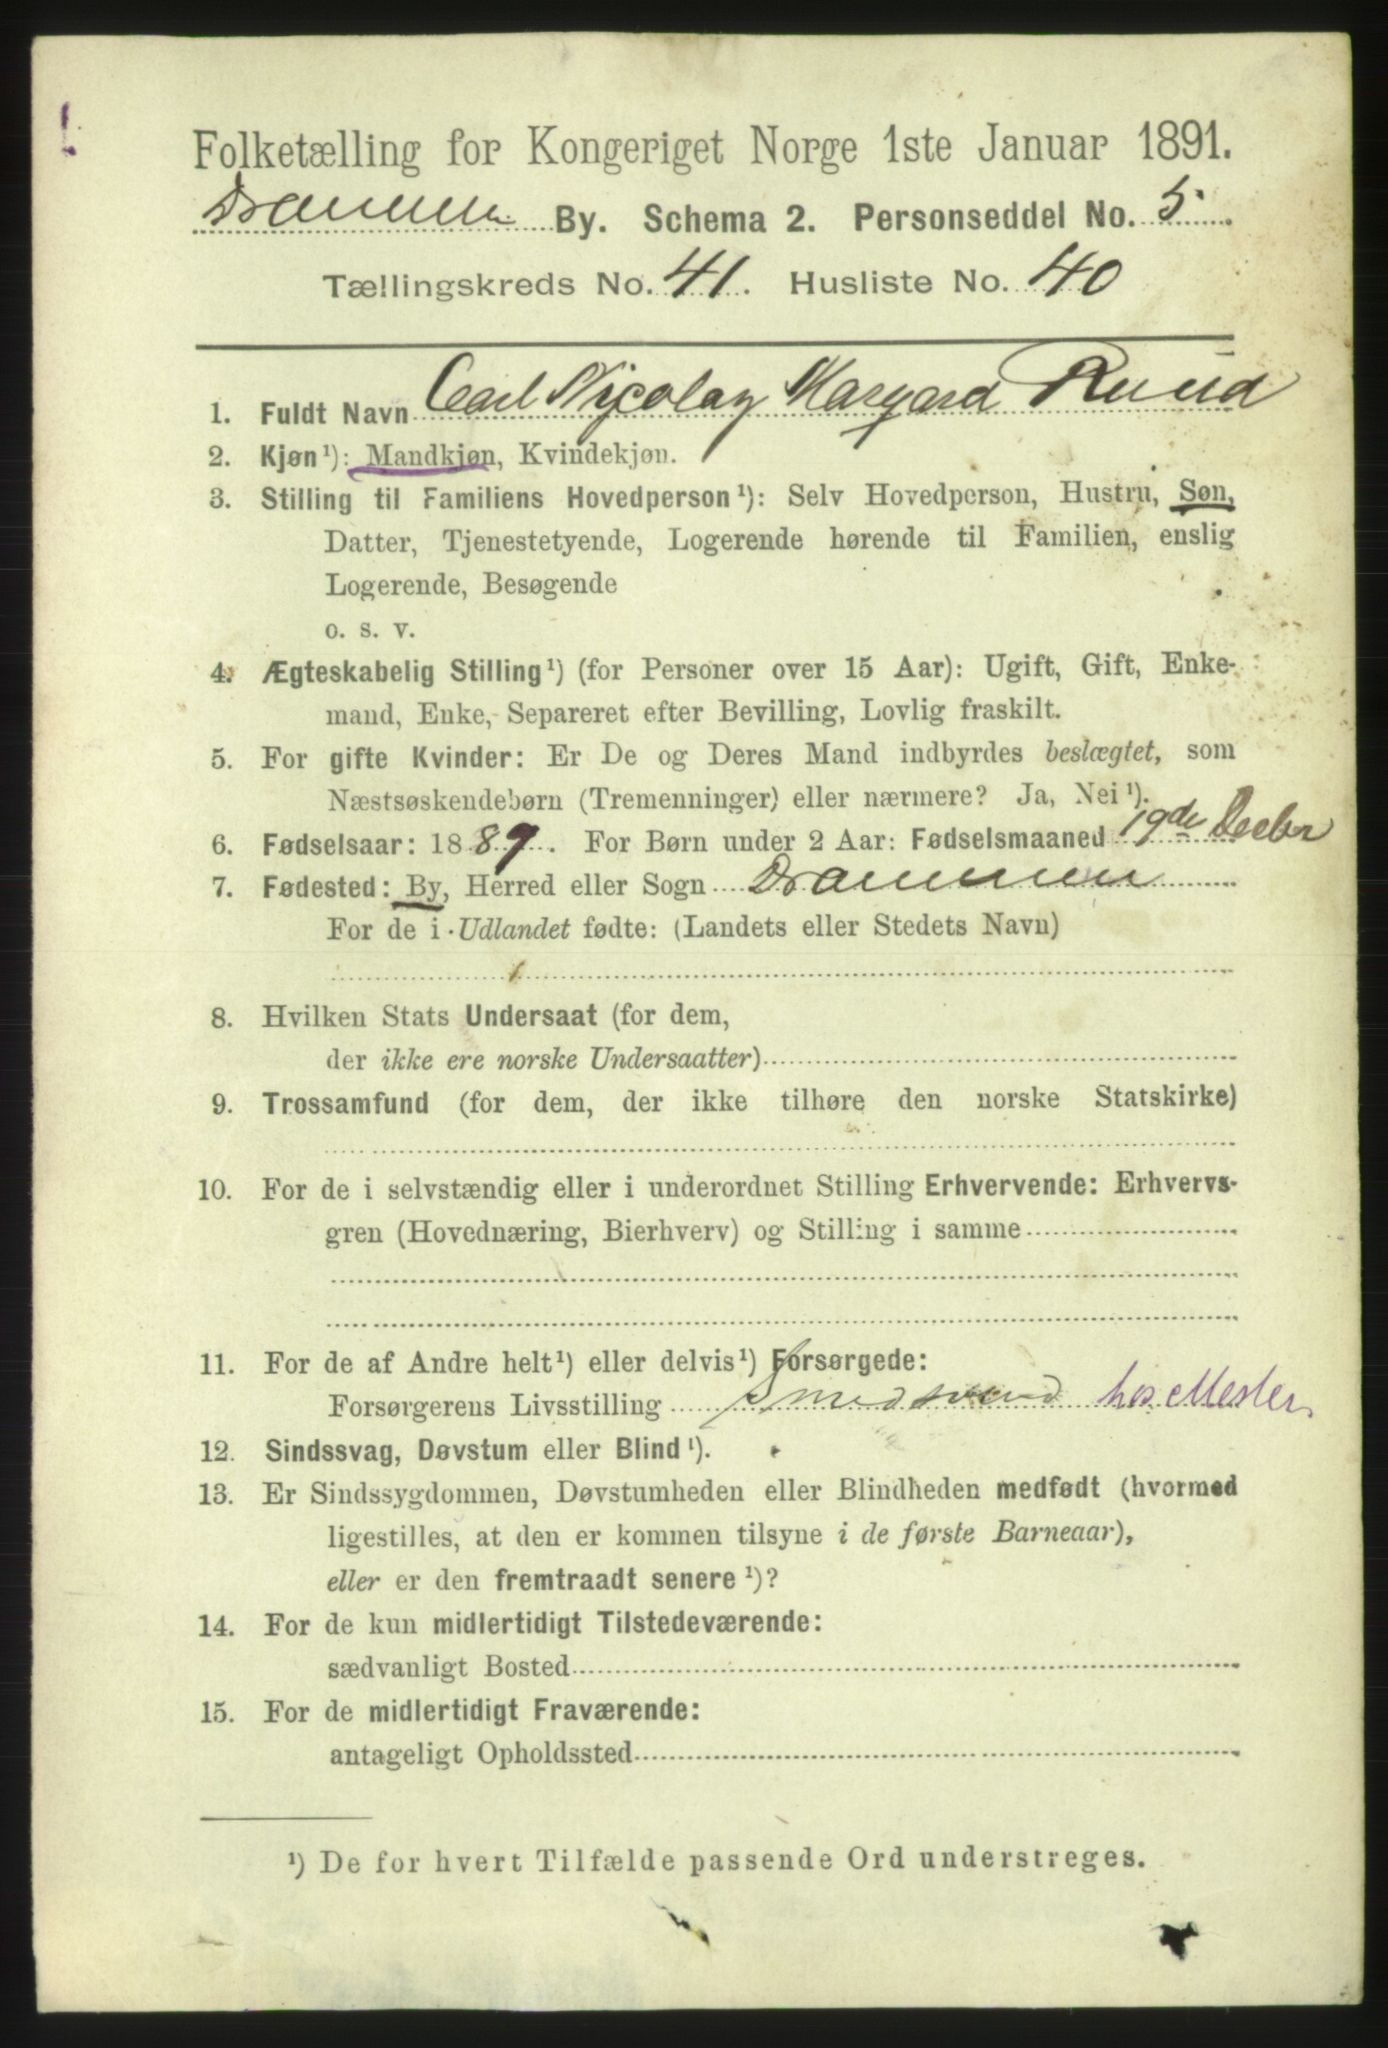 Folketælling for Kongeriget Norge 1ste Januar 1891.
Drammen By. Schema 2. Personseddel No. 5.
Tællingskreds No. 41. Husliste No. 40
1. Fuldt Navn Carl Nicolay Margard Ruud
2. Kjøn¹): Mandkjøn, Kvindekjøn.
3. Stilling til Familiens Hovedperson¹): Selv Hovedperson, Hustru, Søn,
Datter, Tjenestetyende, Logerende hørende til Familien, enslig
Logerende, Besøgende
o. s. v.
4. Ægteskabelig Stilling¹) (for Personer over 15 Aar): Ugift, Gift, Enke-
mand, Enke, Separeret efter Bevilling, Lovlig fraskilt.
5. For gifte Kvinder: Er De og Deres Mand indbyrdes beslægtet, som
Næstsøskendebørn (Tremenninger) eller nærmere? Ja, Nei¹).
6. Fødselsaar: 1889. For Børn under 2 Aar: Fødselsmaaned 19de Decbr
7. Fødested: By, Herred eller Sogn Drammen
For de i Udlandet fødte: (Landets eller Stedets Navn)
8. Hvilken Stats Undersaat (for dem,
der ikke ere norske Undersaatter)
9. Trossamfund (for dem, der ikke tilhøre den norske Statskirke)
10. For de i selvstændig eller i underordnet Stilling Erhvervende: Erhvervs-
gren (Hovednæring, Bierhverv) og Stilling i samme
11. For de af Andre helt¹) eller delvis¹) Forsørgede:
Forsørgerens Livsstilling Smedsvend hos Mester
12. Sindssvag, Døvstum eller Blind¹).
13. Er Sindssygdommen, Døvstumheden eller Blindheden medfødt (hvormed
ligestilles, at den er kommen tilsyne i de første Barneaar),
eller er den fremtraadt senere¹)?
14. For de kun midlertidigt Tilstedeværende:
sædvanligt Bosted
15. For de midlertidigt Fraværende:
antageligt Opholdssted
¹) De for hvert Tilfælde passende Ord understreges.